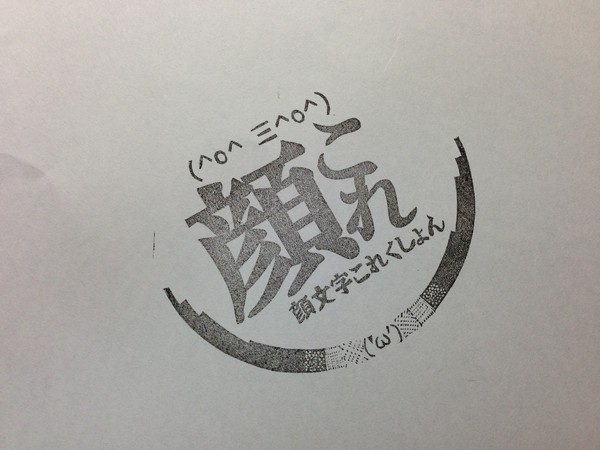 (^o^ 三^o^)
顔これ
顔文字これくしょん
('ω')